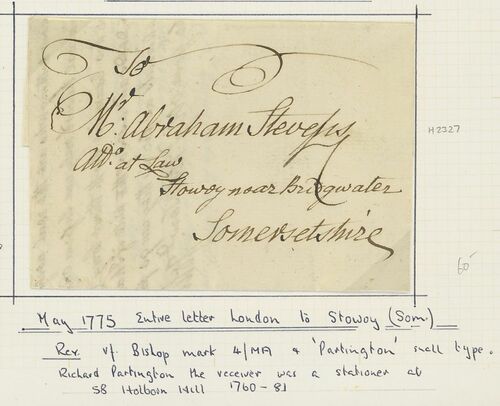 To
Mr. Abraham Stevens
Atto. at Law
Stowoy near Bridgwater
Somersetshire
H2327
60
May 1775 Entire letter London to Stowoy (Som.)
Rev. v/f Bishop mark 4/MA & 'Partington' small type.
Richard Partington the receiver was a stationer at
58 Holborn Hill 1760-81